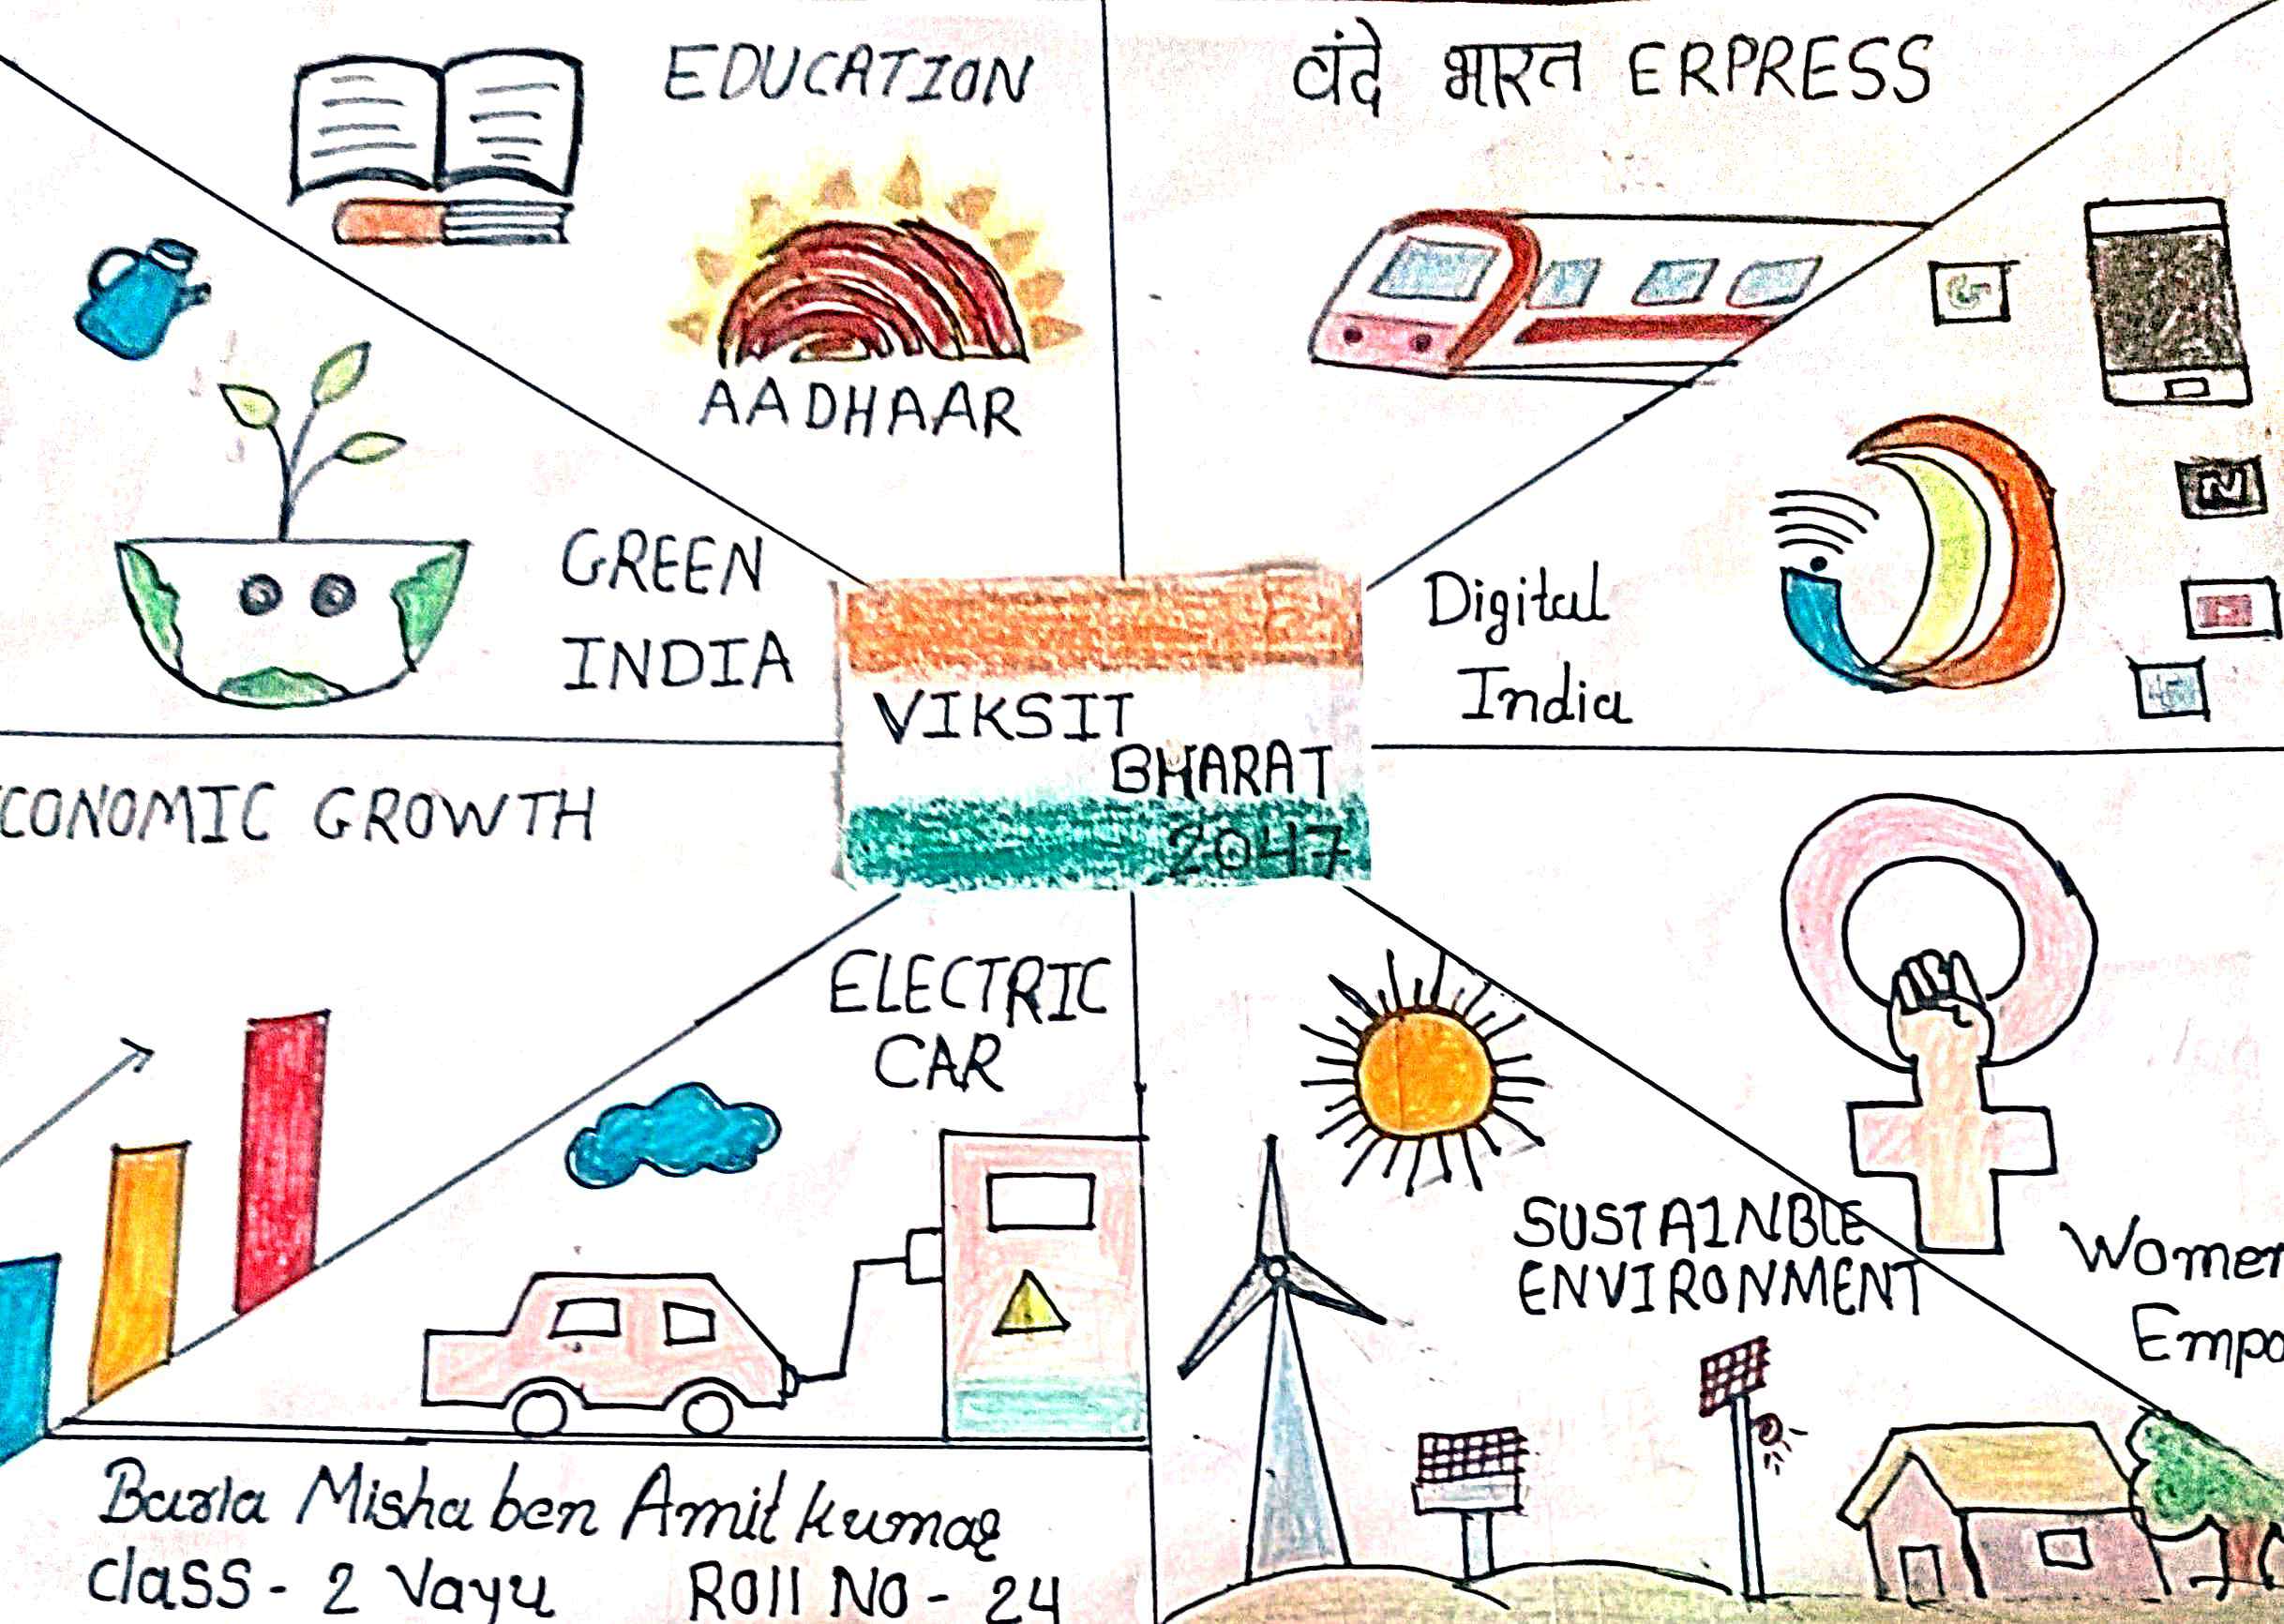 EDUCATION
AADHAAR
वंदे भारत ERPRESS
GREEN
INDIA
Digital
India
VIKSIT
BHARAT
2047
CONOMIC GROWTH
ELECTRIC
CAR
SUSTAINBLE
ENVIRONMENT
Women
Empo
Barla Misha ben Amit kumar
class - 2 Vayu ROll NO - 24